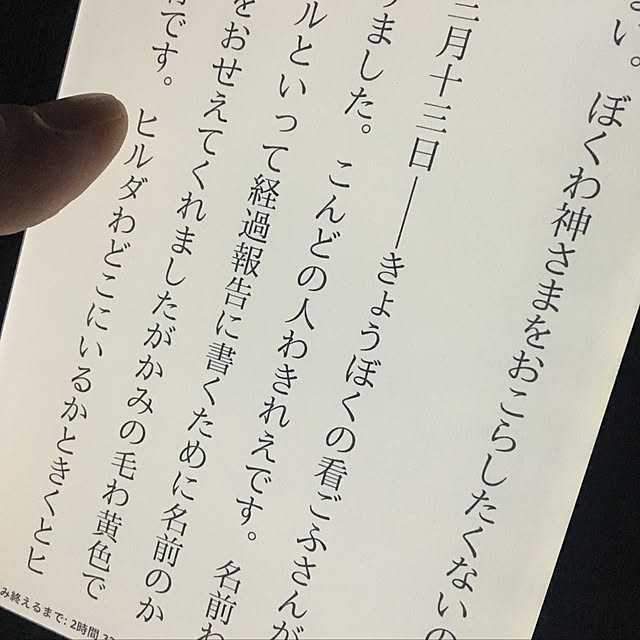 い。ぼくわ神さまをおこらしたくないの
三月十三日――きょうぼくの看ごふさんが
りました。こんどの人わきれえです。名前わ
ルといって経過報告に書くために名前のか
をおせえてくれましたがかみの毛わ黄色で
です。ヒルダわどこにいるかときくとヒ
み終えるまで: 2時間